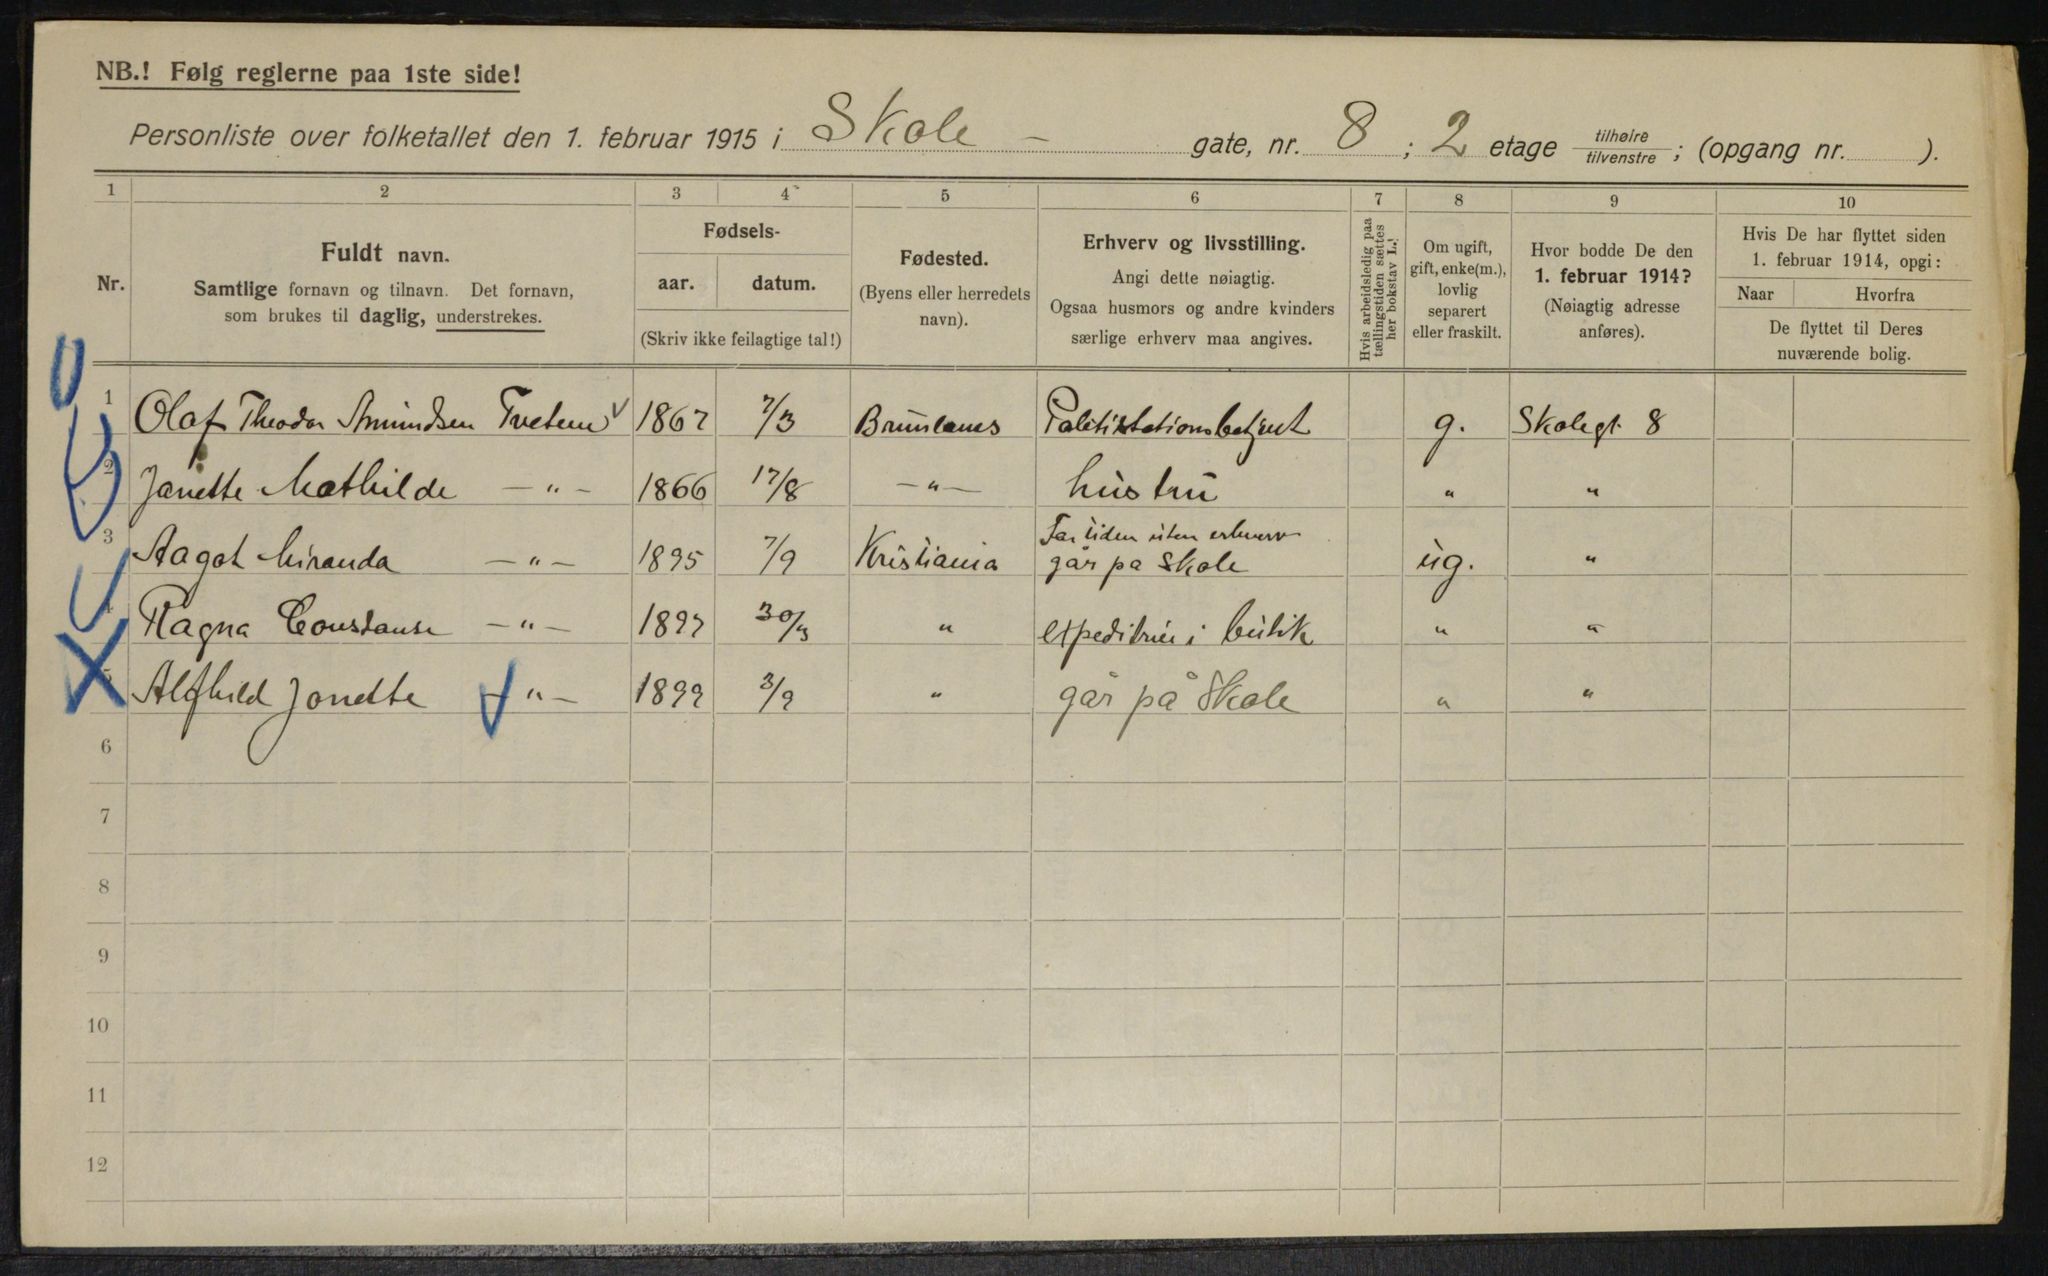 NB.! Følg reglerne paa 1ste side!
Personliste over folketallet den 1. februar 1915 i Skole - gate, nr. 8 ; 2 etage tilhøire/tilvenstre ; (opgang nr. ).
1 2 3 4 5 6 7 8 9 10
Nr.
Fuldt navn.
Samtlige fornavn og tilnavn. Det fornavn,
som brukes til daglig, understrekes.
Fødsels-
aar. datum.
(Skriv ikke feilagtige tal!)
Fødested.
(Byens eller herredets
navn).
Erhverv og livsstilling.
Angi dette nøiagtig.
Ogsaa husmors og andre kvinders
særlige erhverv maa angives.
Hvis arbeidsledig paa
tællingstiden sættes
her bokstav L.!
Om ugift,
gift, enke(m.),
lovlig
separert
eller fraskilt.
Hvor bodde De den
1. februar 1914?
(Nøiagtig adresse
anføres).
Hvis De har flyttet siden
1. februar 1914, opgi:
Naar Hvorfra
De flyttet til Deres
nuværende bolig.
1 Olaf Theodor Amundsen Tveten 1867 7/3 Brunlanes Politistationsbetjent g. Skolegt. 8
2 Janette Mathilde —"— 1866 17/8 —"— hustru " "
3 Aagot Miranda —"— 1895 7/9 Kristiania For tiden uten erhverv
går på skole ug. "
4 Ragna Constanse —"— 1897 30/3 " expeditrise i butik " "
5 Alfhild Janette —"— 1899 3/9 " går på skole " "
6
7
8
9
10
11
12